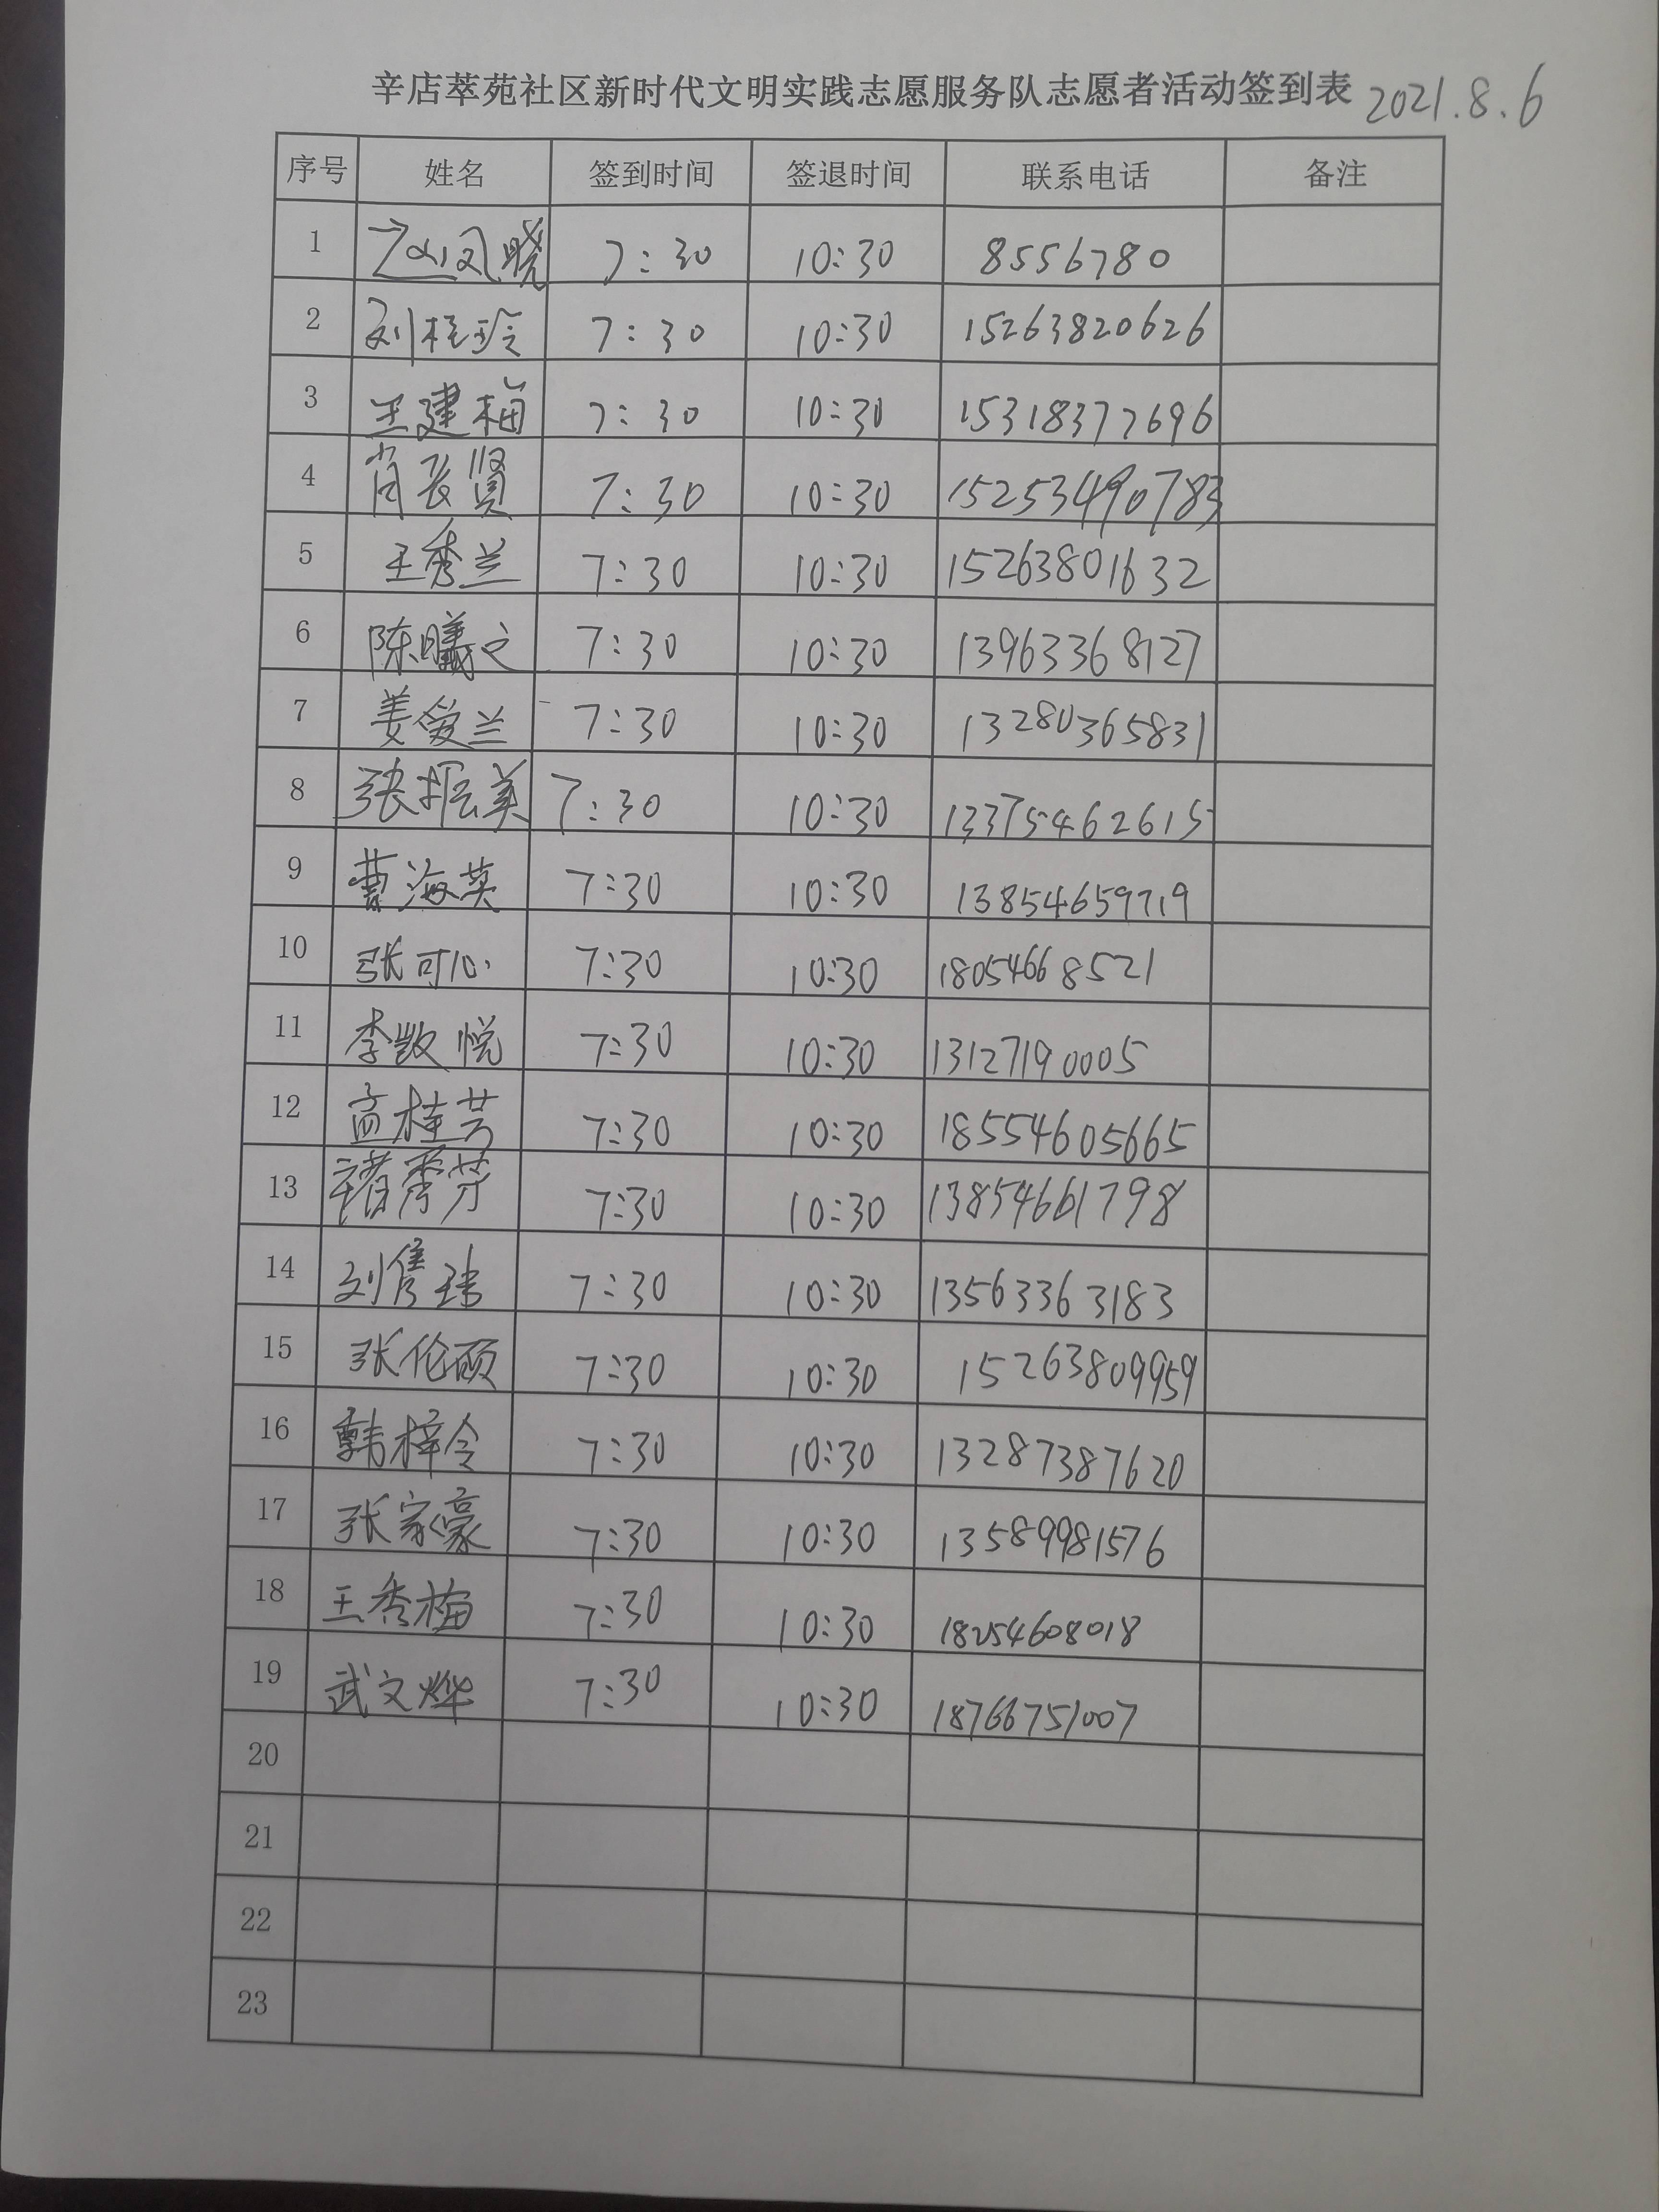 辛店萃苑社区新时代文明实践志愿服务队志愿者活动签到表 2021.8.6
序号 姓名 签到时间 签退时间 联系电话 备注
1 凤晓 7:30 10:30 8556780
2 刘桂玲 7:30 10:30 15263820626
3 王建梅 7:30 10:30 15318377696
4 肖长贤 7:30 10:30 15253490783
5 王秀兰 7:30 10:30 15263801632
6 陈曦文 7:30 10:30 13963368127
7 姜爱兰 7:30 10:30 13280365831
8 张振美 7:30 10:30 13375462615
9 曹海英 7:30 10:30 13854659719
10 张可心 7:30 10:30 18054668521
11 李悦 7:30 10:30 13127190005
12 孟桂芳 7:30 10:30 18554605665
13 诸秀芳 7:30 10:30 13854661798
14 刘隽玮 7:30 10:30 13563363183
15 张伦硕 7:30 10:30 15263809959
16 韩梓令 7:30 10:30 13287387620
17 张家豪 7:30 10:30 13589981576
18 王秀梅 7:30 10:30 18254608018
19 武文烨 7:30 10:30 18766751007
20
21
22
23